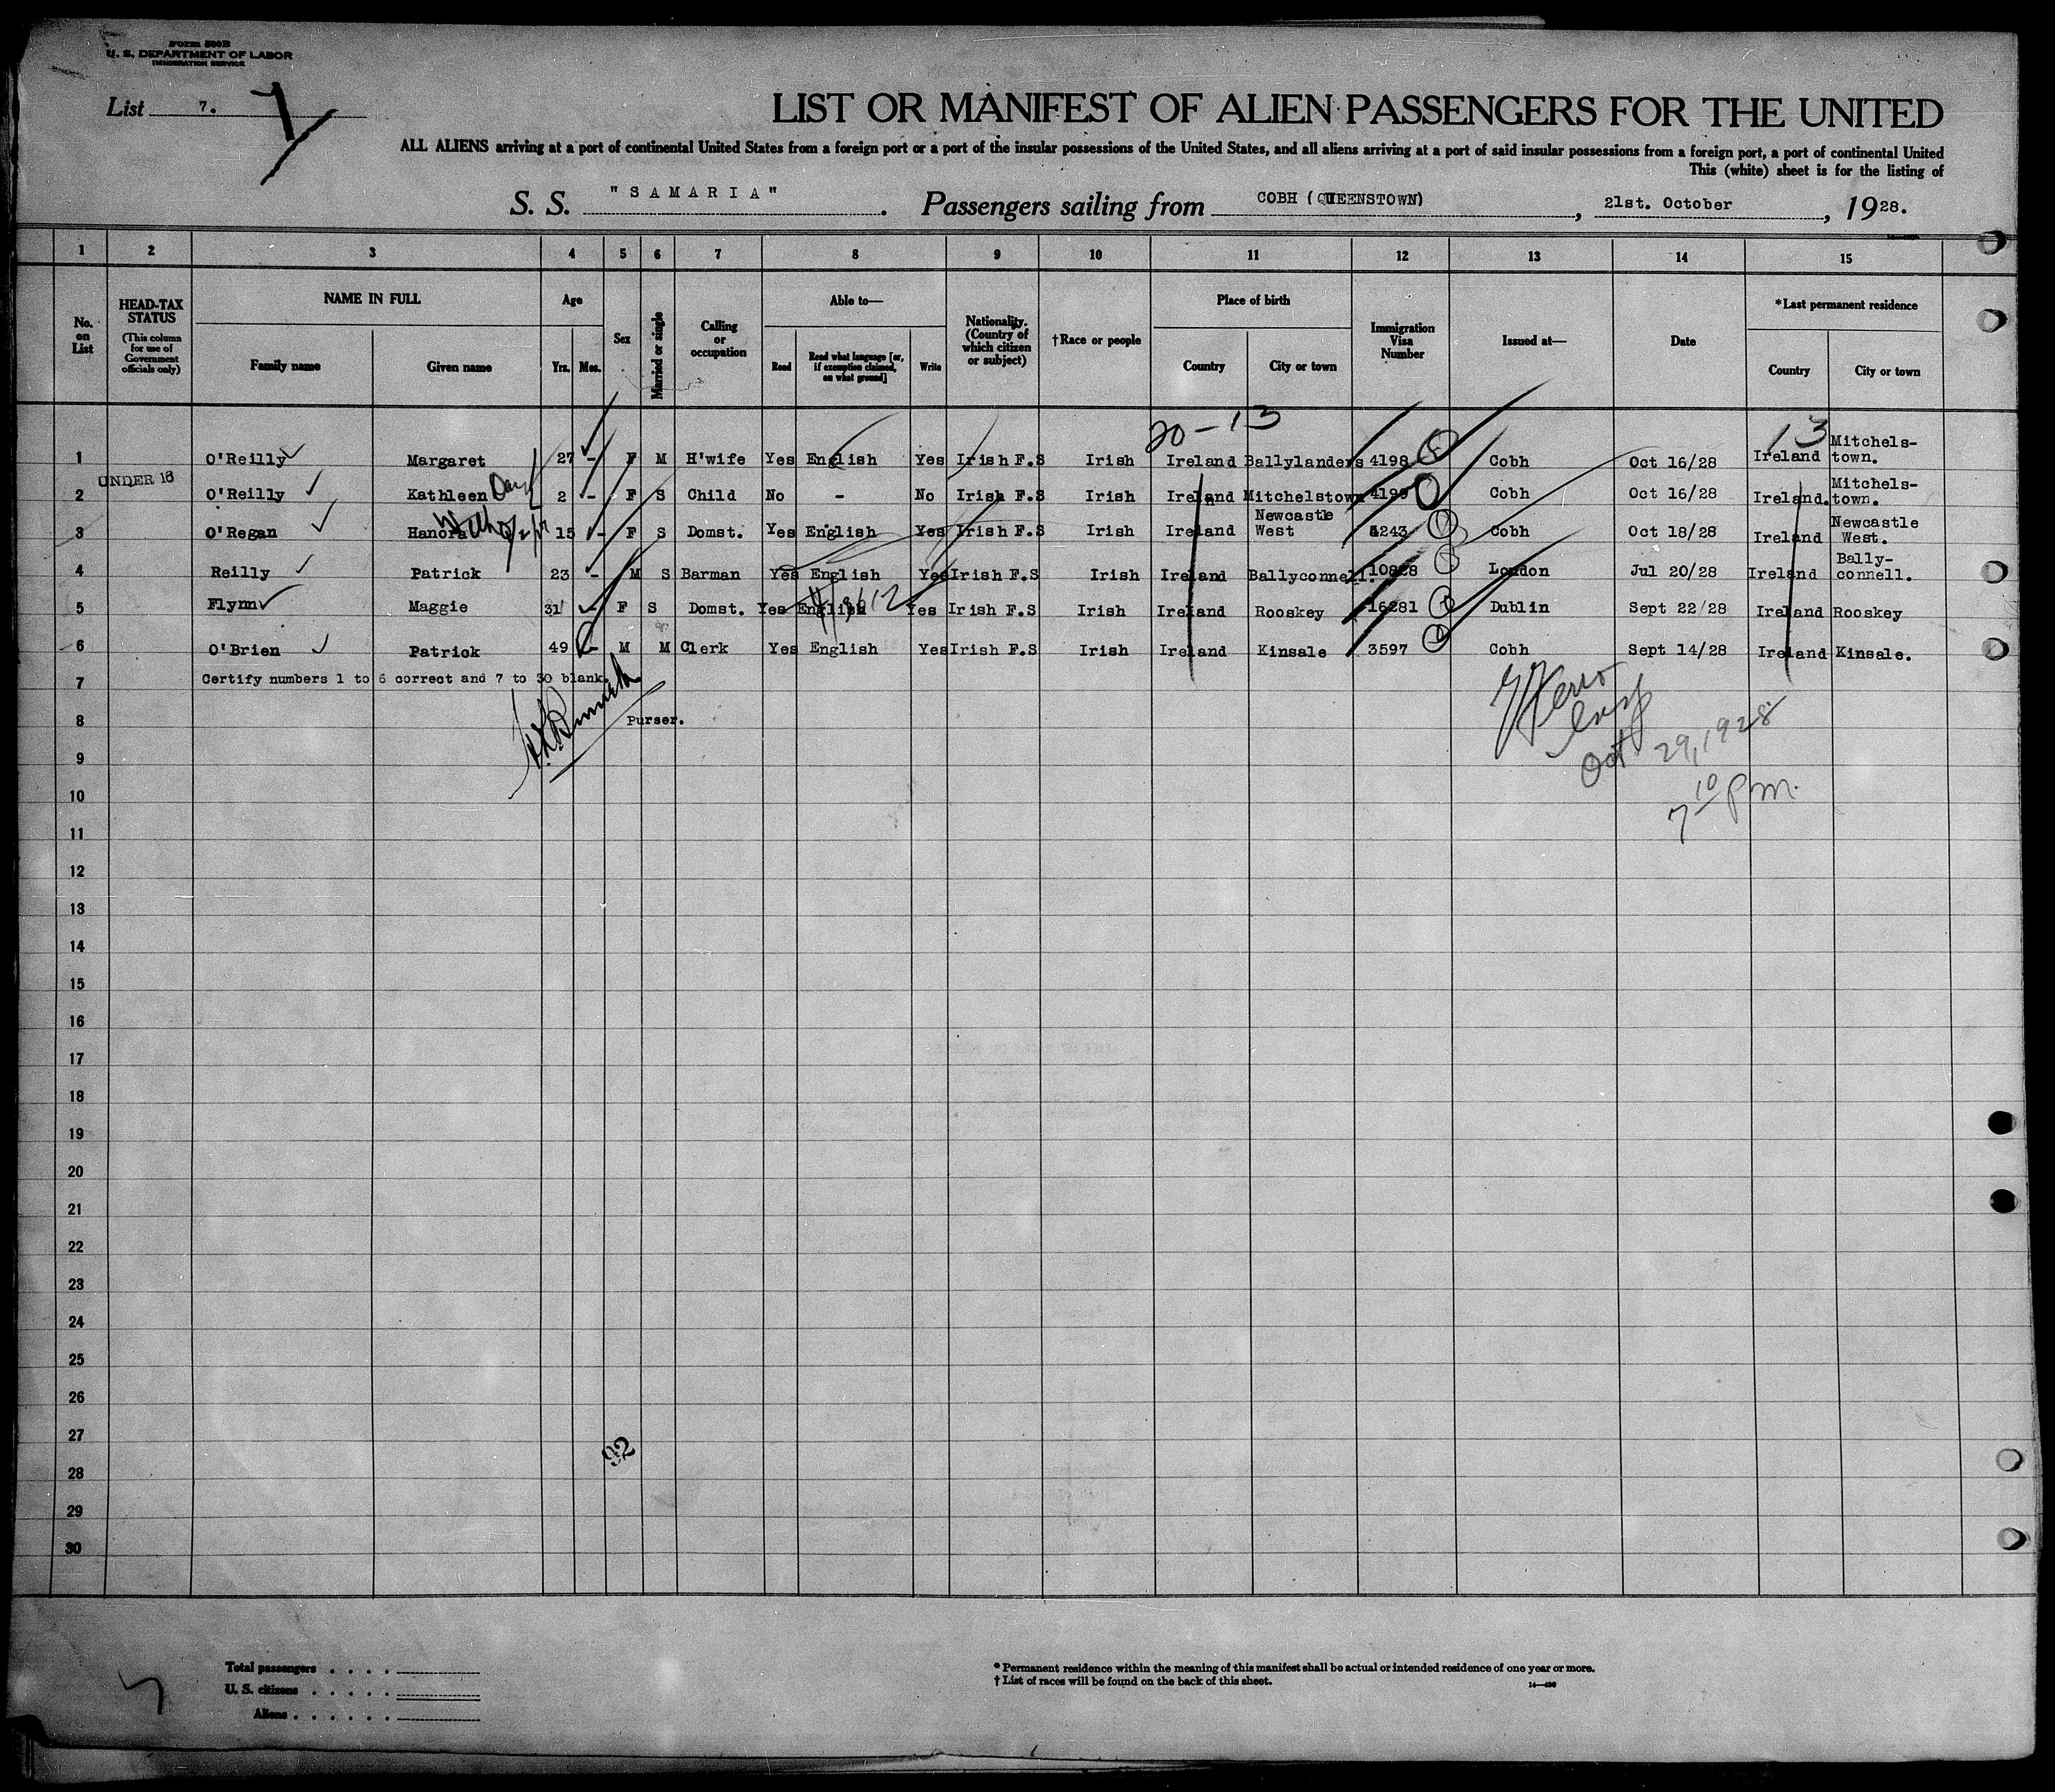 Form 500B
U. S. DEPARTMENT OF LABOR
IMMIGRATION SERVICE
List 7. 7
LIST OR MANIFEST OF ALIEN PASSENGERS FOR THE UNITED
ALL ALIENS arriving at a port of continental United States from a foreign port or a port of the insular possessions of the United States, and all aliens arriving at a port of said insular possessions from a foreign port, a port of continental United
This (white) sheet is for the listing of
S. S. "SAMARIA". Passengers sailing from COBH (QUEENSTOWN), 21st. October, 1928.
1 2 3 4 5 6 7 8 9 10 11 12 13 14 15
No. on List
HEAD-TAX STATUS (This column for use of Government officials only)
NAME IN FULL
Family name Given name
Age
Yrs. Mos.
Sex
Married or single
Calling or occupation
Able to—
Read Read what language [or, if exemption claimed, on what ground] Write
Nationality. (Country of which citizen or subject)
†Race or people
Place of birth
Country City or town
Immigration Visa Number
Issued at—
Date
*Last permanent residence
Country City or town
20-13 13
1 O'Reilly Margaret 27 - F M H'wife Yes English Yes Irish F.S Irish Ireland Ballylanders 4198 Cobh Oct 16/28 Ireland Mitchels-town.
UNDER 16
2 O'Reilly Kathleen 2 - F S Child No - No Irish F.S Irish Ireland Mitchelstown 4199 Cobh Oct 16/28 Ireland. Mitchels-town.
3 O'Regan Hanora 15 - F S Domst. Yes English Yes Irish F.S Irish Ireland Newcastle West 4243 Cobh Oct 18/28 Ireland Newcastle West.
4 Reilly Patrick 23 - M S Barman Yes English Yes Irish F.S Irish Ireland Ballyconnell. 10828 London Jul 20/28 Ireland Bally-connell.
5 Flynn Maggie 31 - F S Domst. Yes English Yes Irish F.S Irish Ireland Rooskey 16281 Dublin Sept 22/28 Ireland Rooskey
6 O'Brien Patrick 49 - M M Clerk Yes English Yes Irish F.S Irish Ireland Kinsale 3597 Cobh Sept 14/28 Ireland Kinsale.
7 Certify numbers 1 to 6 correct and 7 to 30 blank.
8 Purser.
Oct 29, 1928
9
7 10 P m.
10
11
12
13
14
15
16
17
18
19
20
21
22
23
24
25
26
27
92
28
29
30
Total passengers
U. S. citizens
Aliens
7
* Permanent residence within the meaning of this manifest shall be actual or intended residence of one year or more.
† List of races will be found on the back of this sheet.